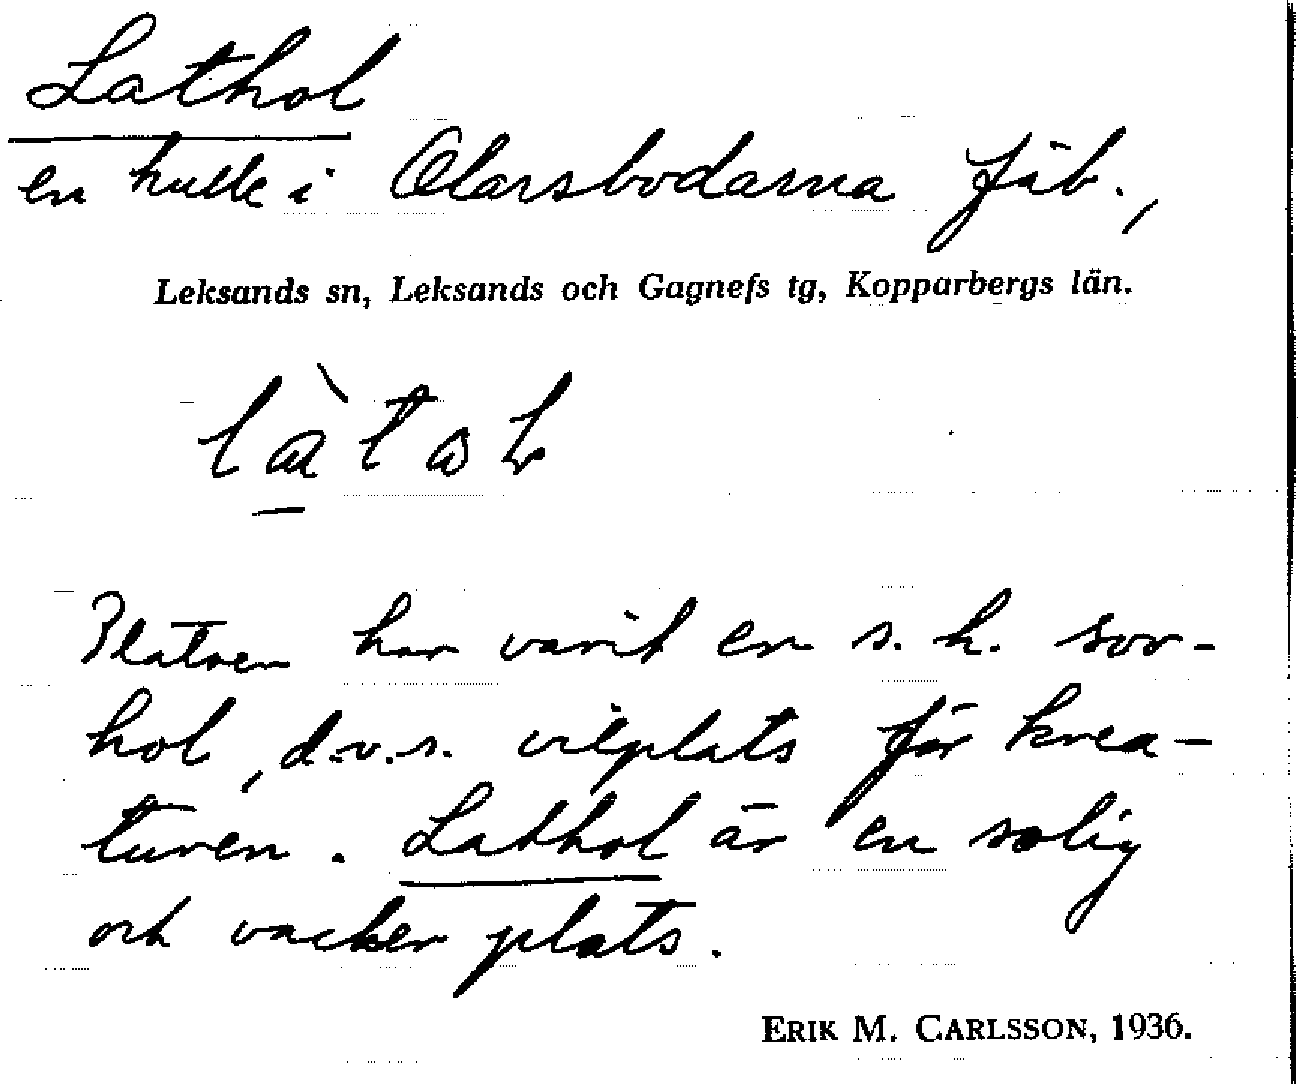 Lathol
en kulle i Olarsbodarna fäb.,
Leksands sn, Leksands och Gagnefs tg, Kopparbergs län.
Platsen har varit en s.k. sov-
hol, d.v.s. vilplats för krea-
turen. Lathol är en solig
och vacker plats.
ERIK M. CARLSSON, 1936.